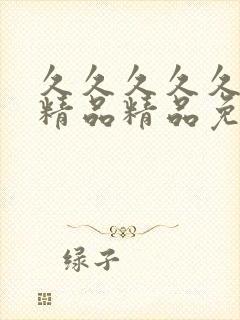 久久久久久
精品精品免
绿子